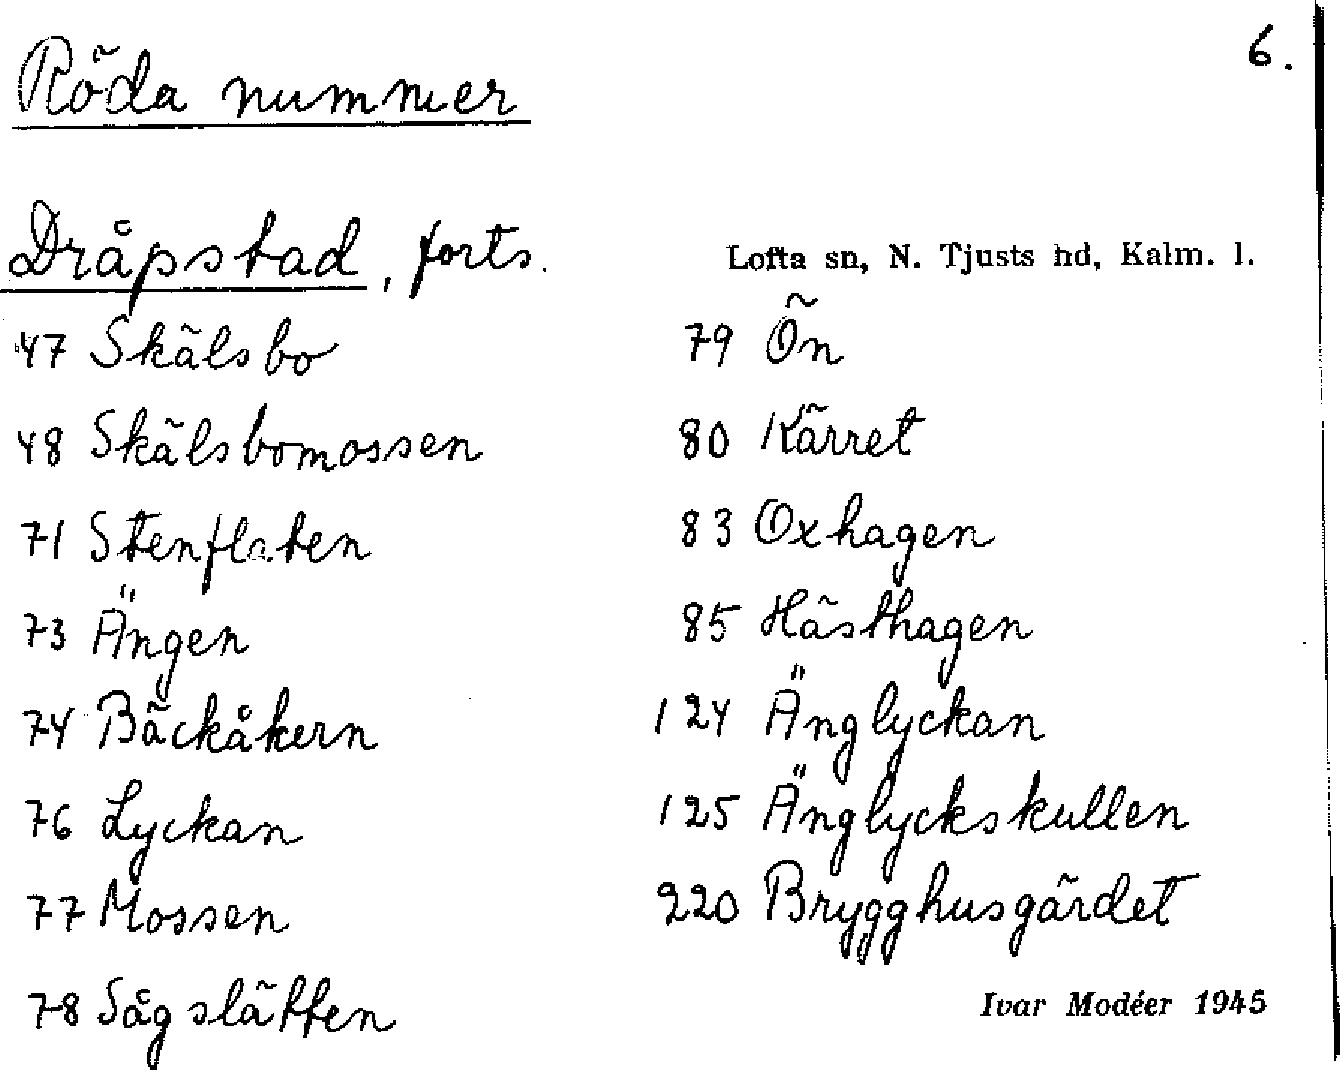 6.
Röda nummer
Dråpstad, forts.
Lofta sn, N. Tjusts hd, Kalm. l.
47 Skälsbo
48 Skälsbomossen
71 Stenflaten
73 Ängen
74 Bäckåkern
76 Lyckan
77 Mossen
78 Sågslätten
79 Ön
80 Kärret
83 Oxhagen
85 Hästhagen
124 Änglyckan
125 Änglyckskullen
220 Brygghusgärdet
Ivar Modéer 1945